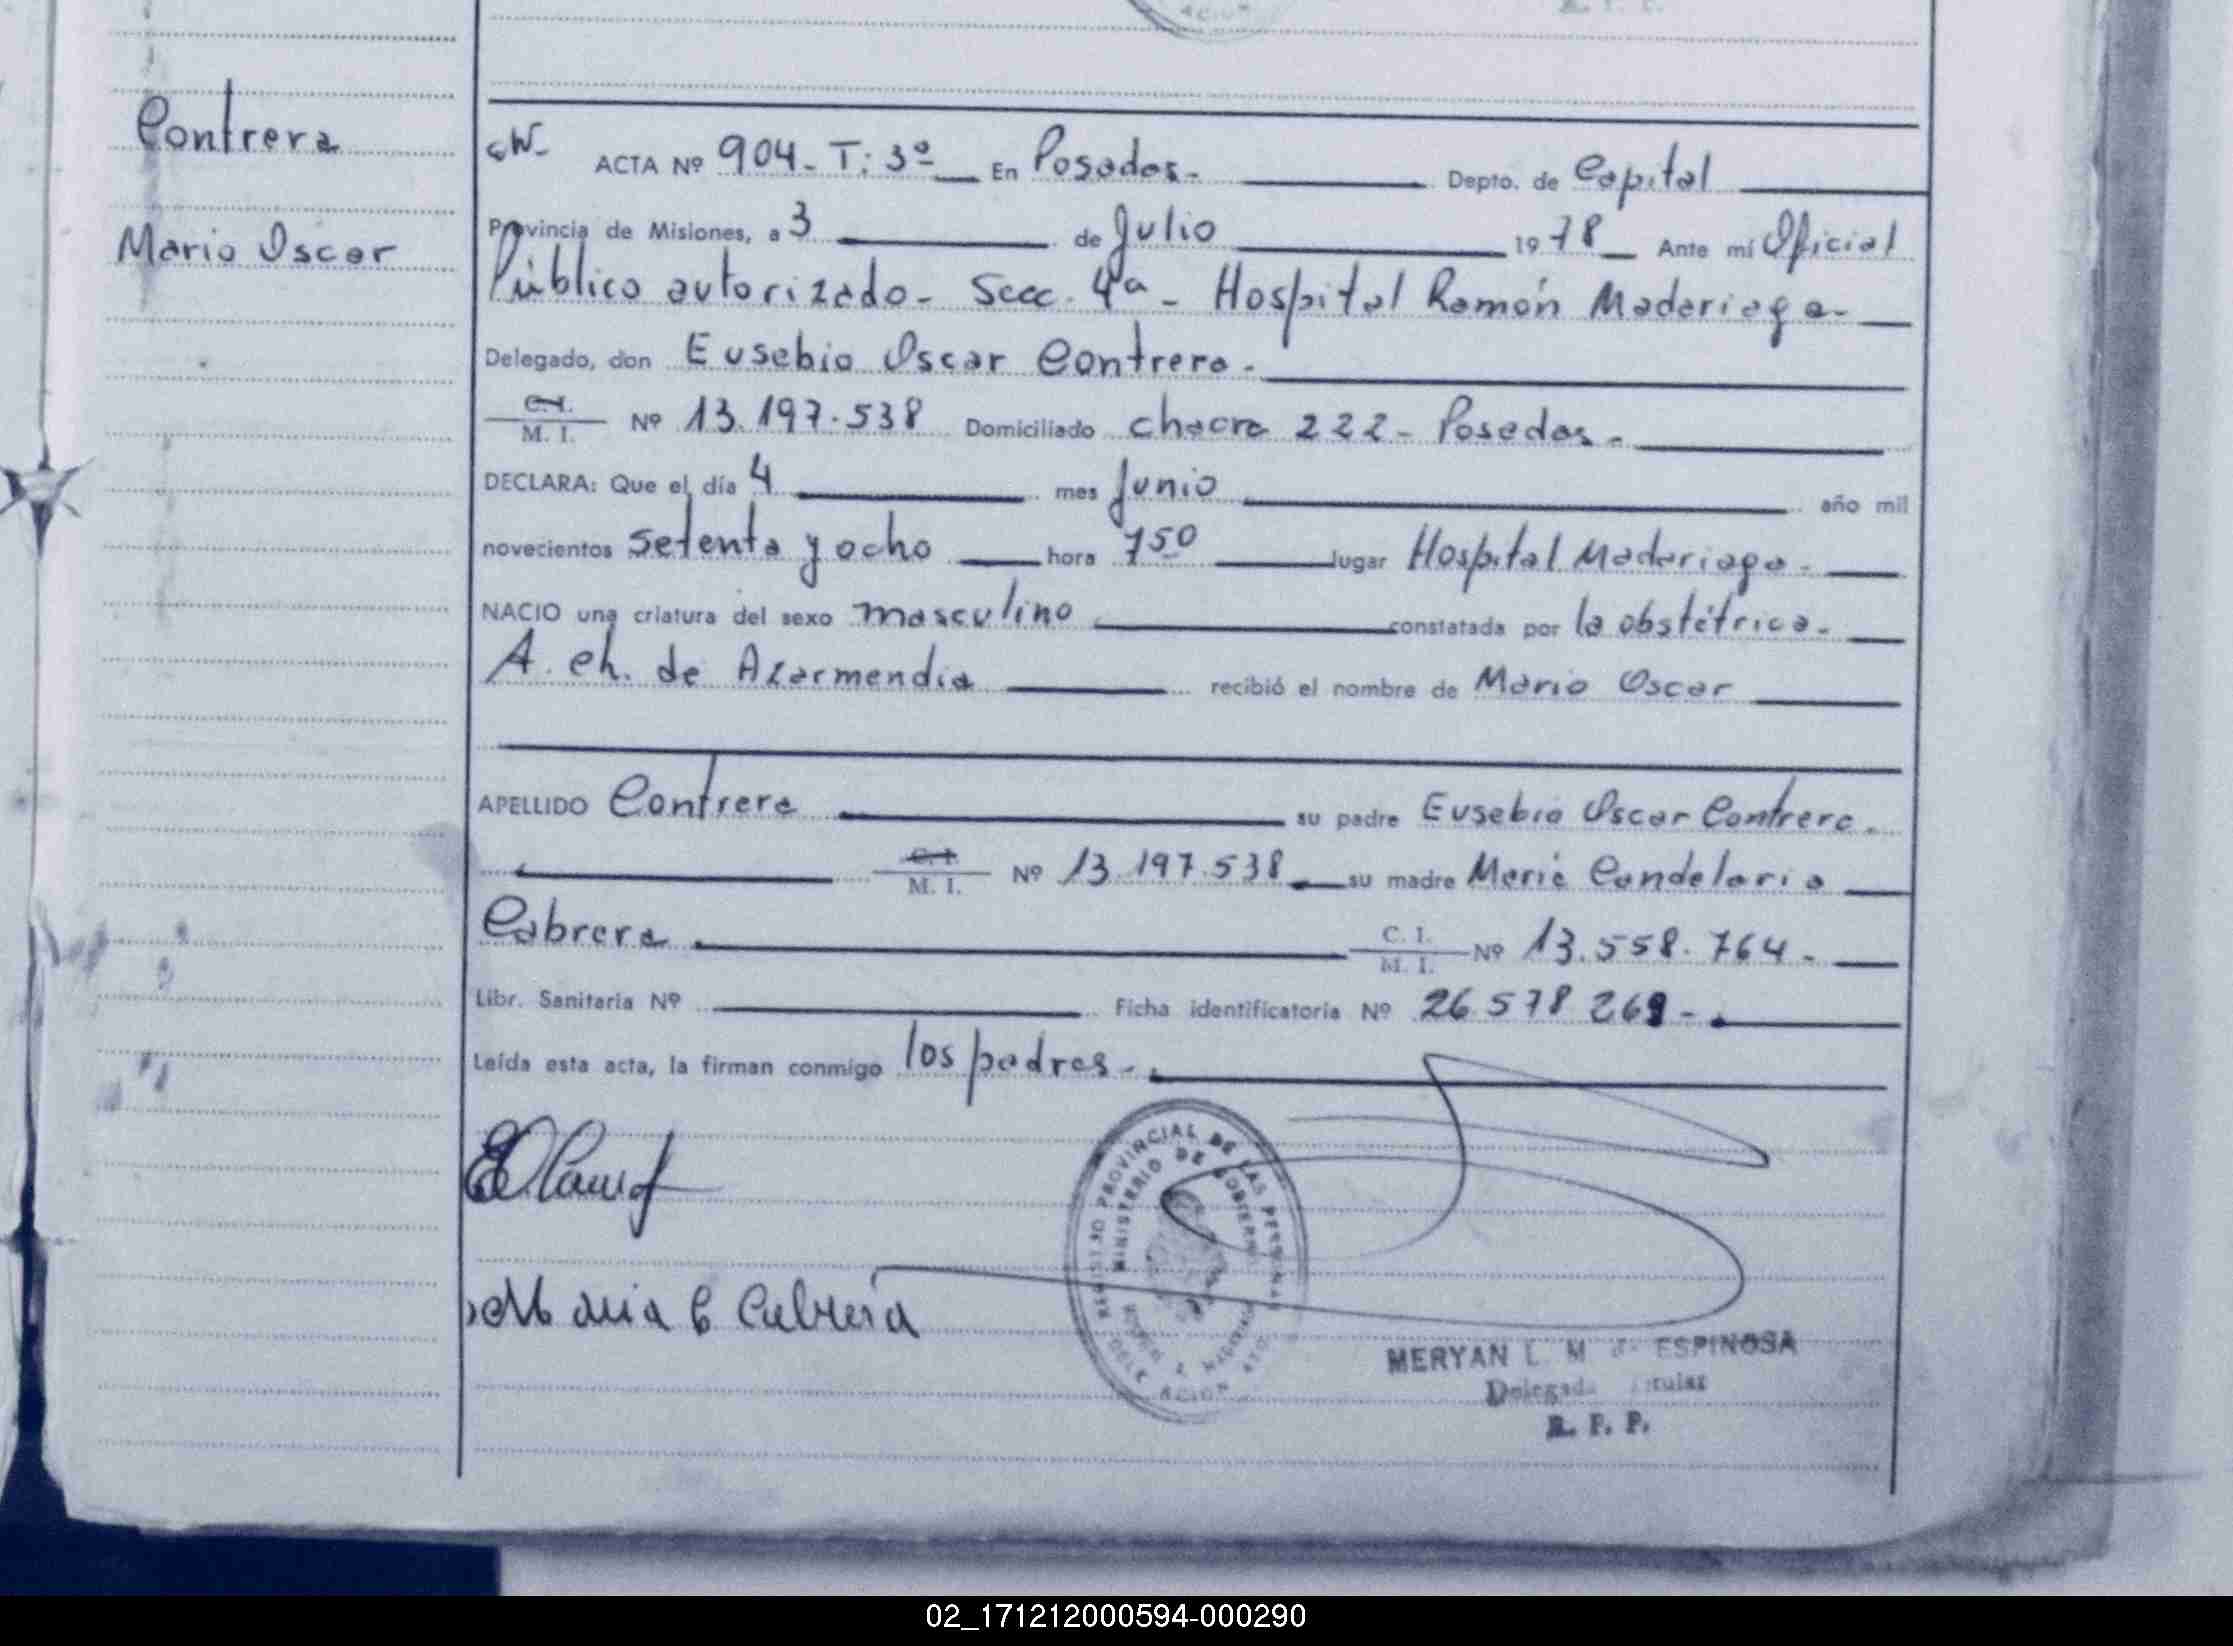 Contrera
Mario Oscar
ACTA Nº 904 - T: 3º En Posadas - Depto. de Capital
Provincia de Misiones, a 3 de Julio 1978 Ante mí Oficial
Público autorizado - Secc. 4ª - Hospital Ramón Madariaga -
Delegado, don Eusebio Oscar Contrera -
C. I. / M. I. Nº 13.197.538 Domiciliado chacra 222 - Posadas -
DECLARA: Que el día 4 mes Junio año mil
novecientos setenta y ocho hora 7 50 lugar Hospital Madariaga -
NACIO una criatura del sexo masculino constatada por la obstétrica -
A. Ch. de Azarmendia recibió el nombre de Mario Oscar
APELLIDO Contrera su padre Eusebio Oscar Contrera -
C. I. / M. I. Nº 13.197.538 su madre María Candelaria
Cabrera C. I. / M. I. Nº 13.558.764 -
Libr. Sanitaria Nº Ficha identificatoria Nº 26.578 269 -
Leída esta acta, la firman conmigo los padres -
REGISTRO PROVINCIAL DE LAS PERSONAS
MINISTERIO DE GOBIERNO
Maria C Cabrera
MERYAN L. M. de ESPINOSA
Delegada Titular
R. P. P.
02_171212000594-000290